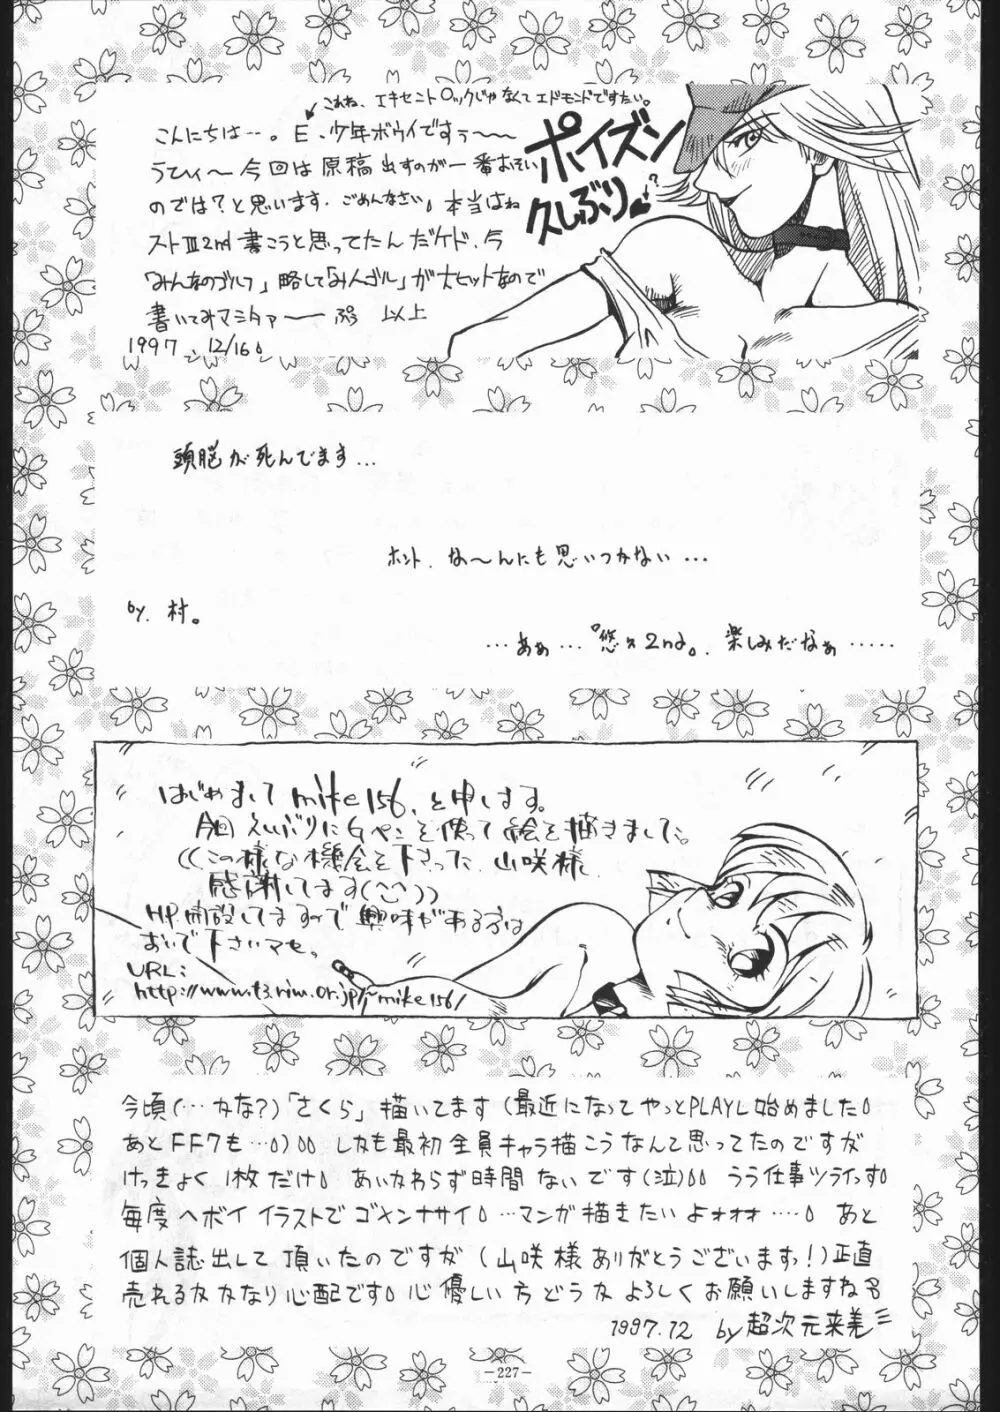 これね、エキセントロックじゃなくてエドモンドですたい。
こんにちは…。E.少年ボウイですぅ〜〜
うひぃ〜今回は原稿出すのが一番おそい
のでは?と思います。ごめんなさい。本当はね
ストⅢ2nd書こうと思ってたんだケド、今
「みんなのゴルフ」略して「みんゴル」が大ヒットなので
書いてみマシタァ〜〜 ぷぅ 以上
1997 12/16。
ポイズン
久しぶり
?
頭脳が死んでます…
ホント、な〜んにも思いつかない…
by. 村。
…あぁ…『悠久2nd。』楽しみだなぁ……
はじめまして mike156、と申します。
今回えいぶりにGペンを使って絵を描きました。
((この様な機会を下さった、山咲様、
感謝してます(^^)))
HP.開設してますので興味がある方は
おいで下さいマセ。
URL:
http://www.t3.rim.or.jp/~mike156/
今頃(…カナ?)「さくら」描いてます(最近になってやっとPLAYし始めました。
あとFF7も…。)。。しかも最初全員キャラ描こうなんて思ってたのですが
けっきょく1枚だけ。あいかわらず時間ないです(泣)。。うう仕事ツライっす。
毎度ヘボイイラストでゴメンナサイ。…マンガ描きたいよォォォ……。あと
個人誌出して頂いたのですが(山咲様ありがとうございますっ!)正直
売れるカカなり心配です。心優しい方どうカよろしくお願いしますね
1997.12 by 超次元来美
-227-